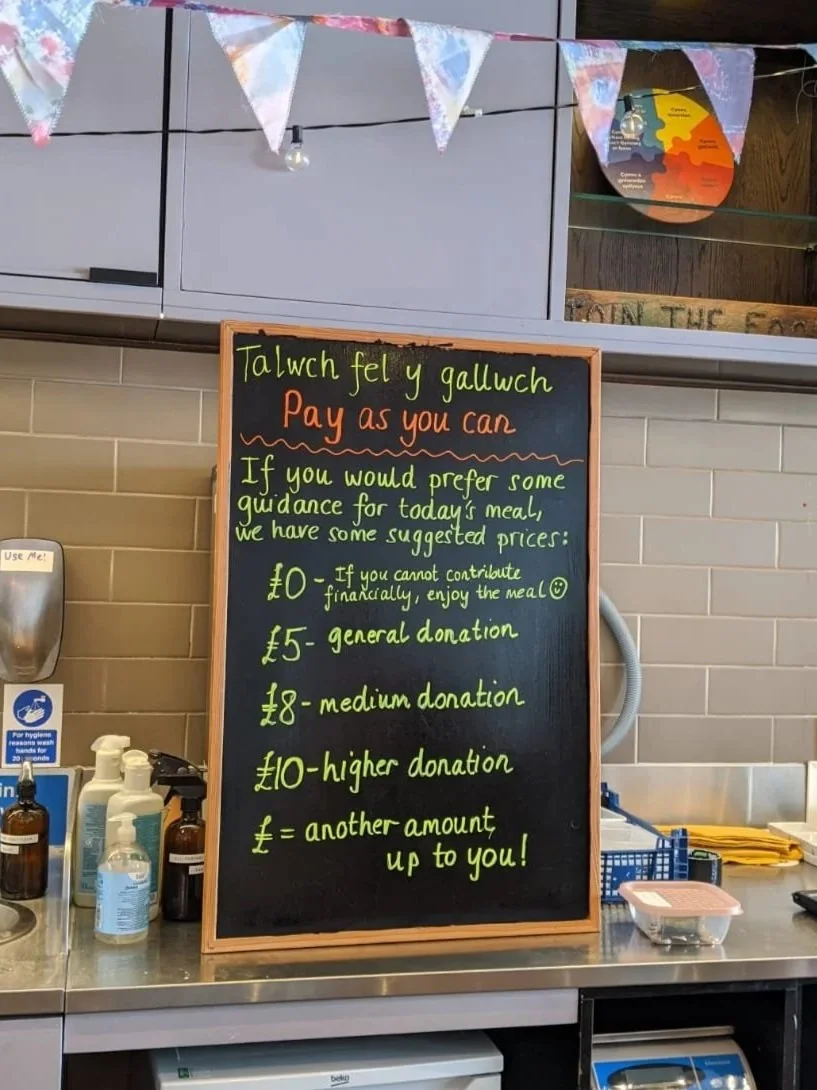 JOIN THE
Talwch fel y gallwch
Pay as you can
If you would prefer some
guidance for today's meal,
we have some suggested prices:
£0 - If you cannot contribute
financially, enjoy the meal ☺
£5 - general donation
£8 - medium donation
£10 - higher donation
£ = another amount,
up to you!
Use Me!
For hygiene
reasons wash
hands for
20 seconds
beko